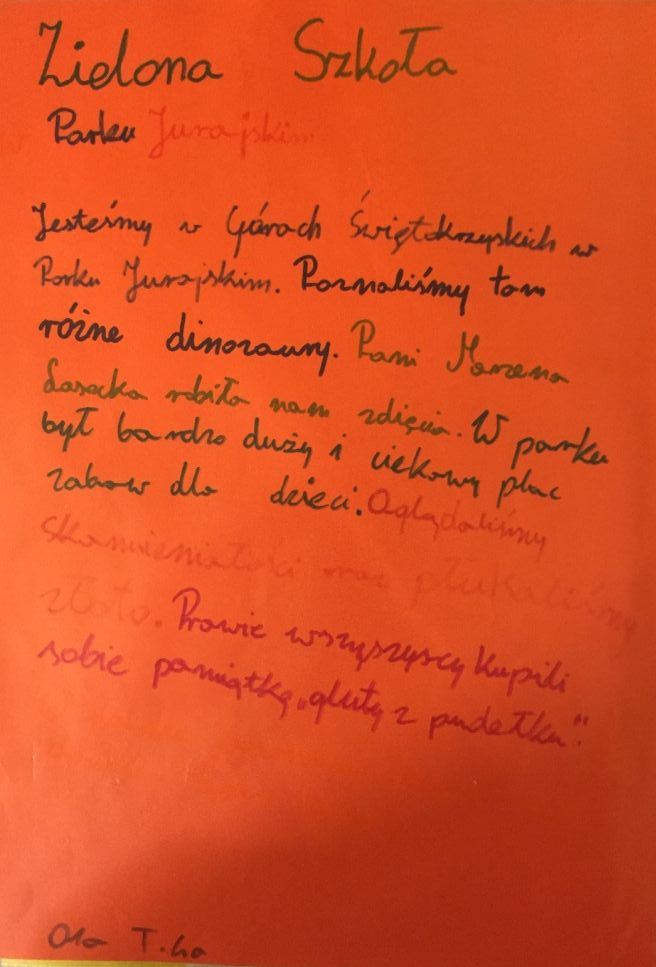 Zielona Szkoła
w Parku Jurajskim
Jesteśmy w Górach Świętokrzyskich w
Parku Jurajskim. Poznaliśmy tam
różne dinozaury. Pani Marzena
Lasocka robiła nam zdięcia. W parku
był bardzo duży i ciekawy plac
zabaw dla dzieci. Oglądaliśmy
skamieniałości oraz płukaliśmy
złoto. Prawie wszyszyscy kupili
sobie pamiątkę „gluty z pudełka".
Ola